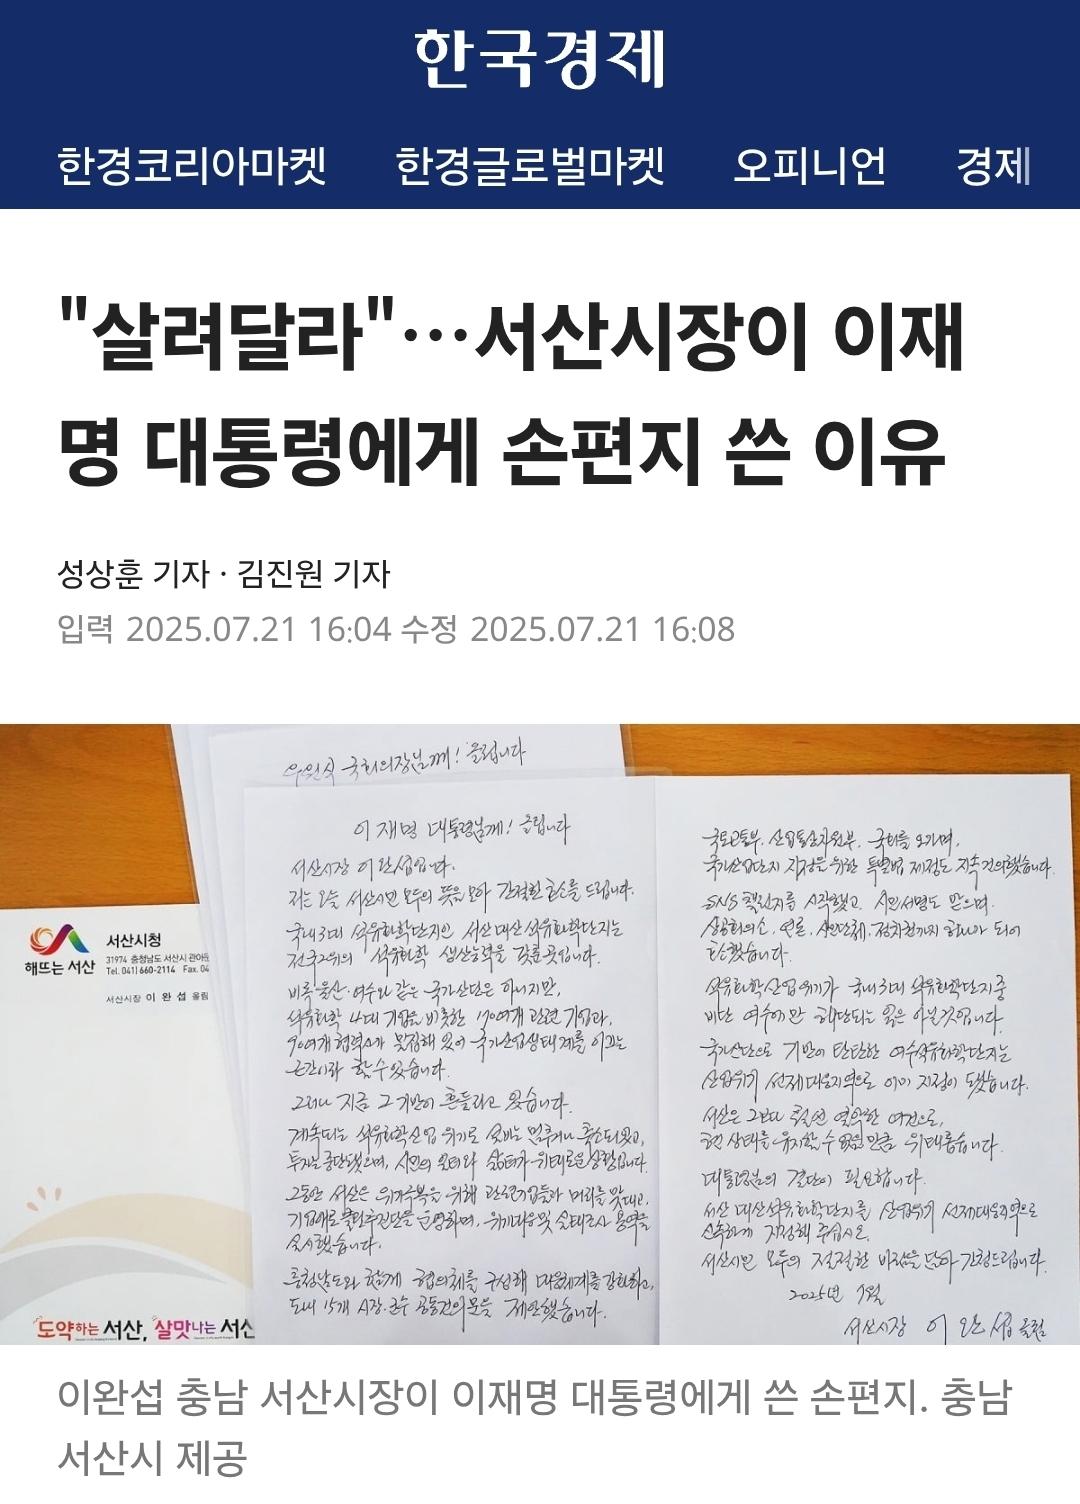 한국경제
한경코리아마켓 한경글로벌마켓 오피니언 경제
"살려달라"…서산시장이 이재
명 대통령에게 손편지 쓴 이유
성상훈 기자 · 김진원 기자
입력 2025.07.21 16:04 수정 2025.07.21 16:08
우원식 국회의장님께! 올립니다
이재명 대통령님께! 올립니다
서산시장 이완섭입니다.
저는 오늘 서산시민 모두의 뜻을 모아 간절한 호소를 드립니다.
국내 3대 석유화학단지인 서산 대산석유화학단지는
전국 2위의 석유화학 생산능력을 갖춘 곳입니다.
비록 울산·여수와 같은 국가산단은 아니지만,
석유화학 4대 기업을 비롯한 70여개 관련 기업과,
90여개 협력사가 밀집해 있어 국가산업생태계를 이끄는
근간이라 할 수 있습니다.
그러나 지금 그 기반이 흔들리고 있습니다.
계속되는 석유화학산업 위기로 설비는 멈추거나 축소되었고,
투자는 중단됐으며, 시민의 일터와 삶터가 위태로운 상황입니다.
그동안 서산은 위기극복을 위해 관련기업들과 머리를 맞대고,
기업애로 추진단을 운영하며, 위기대응 및 실태조사 용역을
실시했습니다.
충청남도와 함께 협의체를 구성해 대응체계를 강화하고,
도내 15개 시장·군수 공동건의문을 제안했습니다.
국토교통부, 산업통상자원부, 국회를 오가며,
국가산업단지 지정을 위한 특별법 제정도 지속 건의했습니다.
SNS 챌린지를 시작했고, 시민 서명도 받으며,
상공회의소, 언론, 시민단체, 정치권까지 하나가 되어
호소했습니다.
석유화학산업 위기가 국내 3대 석유화학단지 중
비단 여수에만 해당되는 일은 아닐 것입니다.
국가산단으로 기반이 탄탄한 여수석유화학단지는
산업위기 선제대응지역으로 이미 지정이 됐습니다.
서산은 그보다 훨씬 열악한 여건으로,
현 상태를 유지할 수 없을 만큼 위태롭습니다.
대통령님의 결단이 필요합니다.
서산 대산석유화학단지를 산업위기 선제대응지역으로
신속하게 지정해 주십시오.
서산시민 모두의 절절한 바람을 담아 간청드립니다.
2025년 7월
서산시장 이완섭 올림
해뜨는 서산
서산시청
31974 충청남도 서산시 관아문
Tel. 041) 660-2114 Fax. 04
서산시장 이 완 섭 올림
도약하는 서산, 살맛나는 서산
이완섭 충남 서산시장이 이재명 대통령에게 쓴 손편지. 충남
서산시 제공